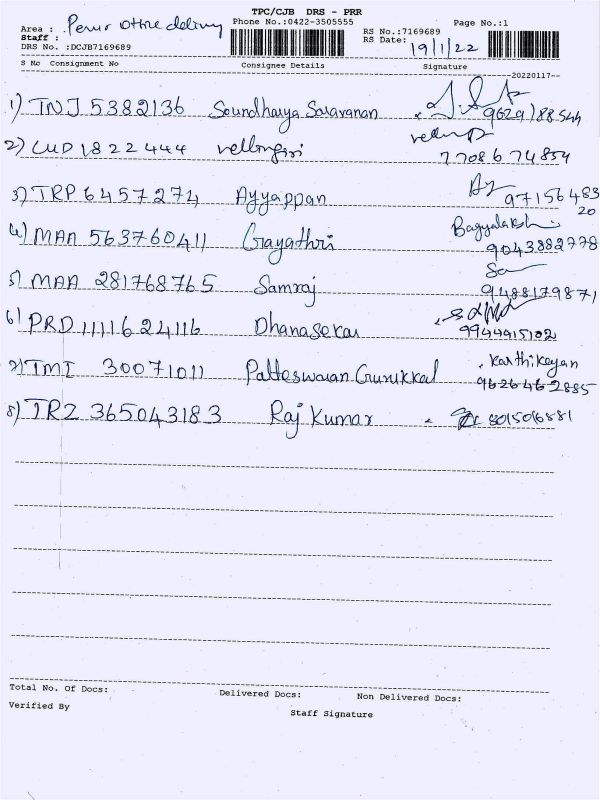 TPC/CJB DRS - PRR
Area : Perur office delivery Phone No.:0422-3505555 RS No.:7169689 Page No.:1
Staff : RS Date: 19/1/22
DRS No. :DCJB7169689
S No Consignment No Consignee Details Signature
20220117
1) TNJ 5382136 Soundharya Saravanan 9629188544
2) CUD 1822444 vellingiri 7708674854
3) TRP 6457274 Ayyappan 9715648320
4) MAA 563760411 Gayathri Bagyalakshmi 9043882778
5) MAA 281768765 Samraj Sa 9488179871
6) PRD 1111624116 Dhanasekar 9944915102
7) TMI 30071011 Patteswaran Gurukkal Karthikeyan 9626462885
8) TRZ 365043183 Raj Kumar 8015016881
Total No. Of Docs: Delivered Docs: Non Delivered Docs:
Verified By Staff Signature